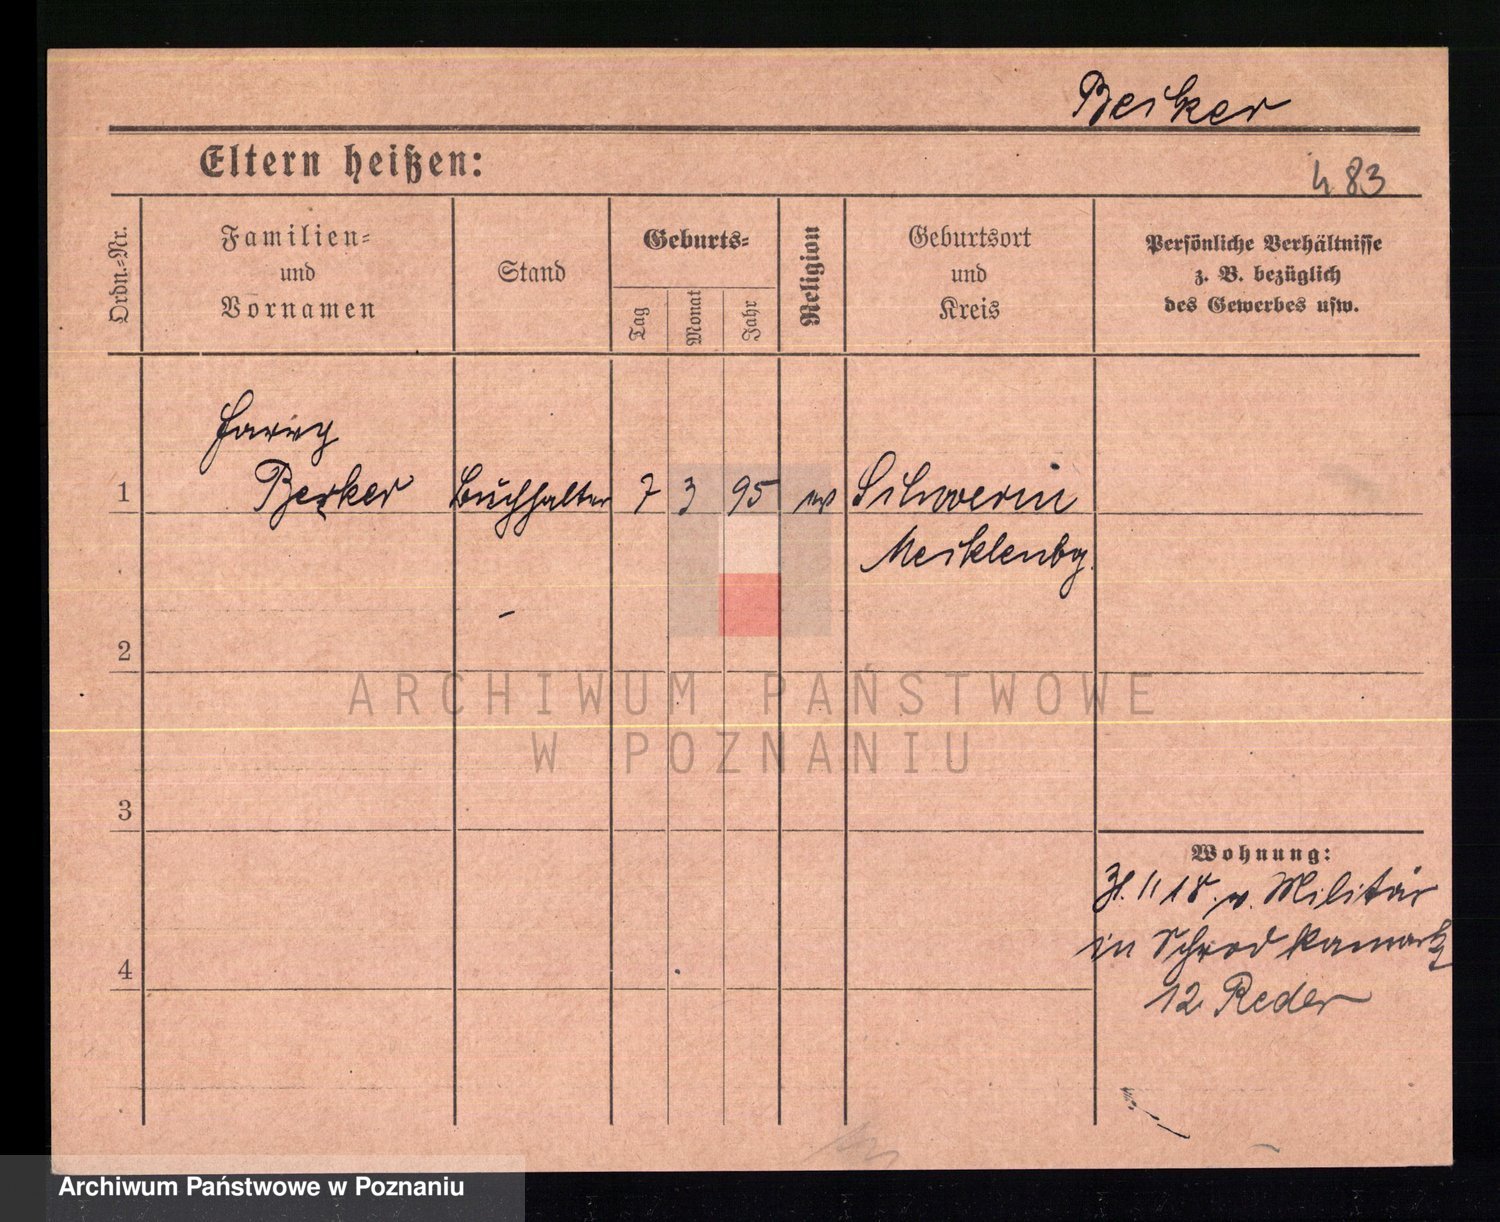 Becker
Eltern heißen:
483
Ordn.-Nr.
Familien-
und
Vornamen
Stand
Geburts-
Tag
Monat
Jahr
Religion
Geburtsort
und
Kreis
Persönliche Verhältnisse
z. B. bezüglich
des Gewerbes usw.
Harry
1 Becker Buchhalter 7 3 95 ev Schwerin
Mecklenbg.
2
ARCHIWUM PAŃSTWOWE
W POZNANIU
3
Wohnung:
11 18. v. Militär
in Schrod
4
12. Reder
Archiwum Państwowe w Poznaniu